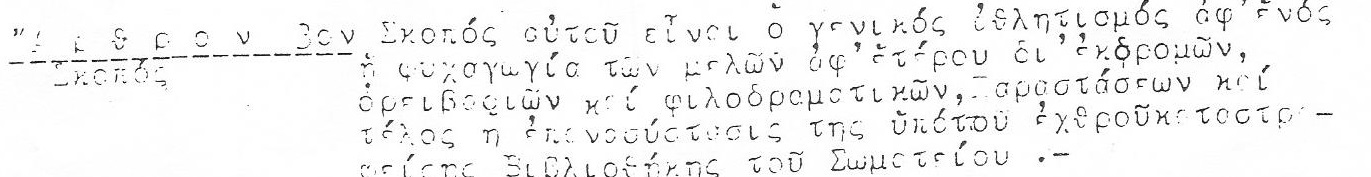 "Α ρ θ ρ ο ν 3ον Σκοπός αὐτοῦ εἶναι ὁ γενικός ἀθλητισμός ἀφ'ἑνός
Σκοπός ἡ ψυχαγωγία τῶν μελῶν ἀφ'ἑτέρου δι'ἐκδρομῶν,
ὀρειβασιῶν καί φιλοδραματικῶν, Παραστάσεων καί
τέλος η ἐπανασύστασις της ὑπότοῦ ἐχθροῦκαταστρα-
φείσης Βιβλιοθήκης τοῦ Σωματείου .-